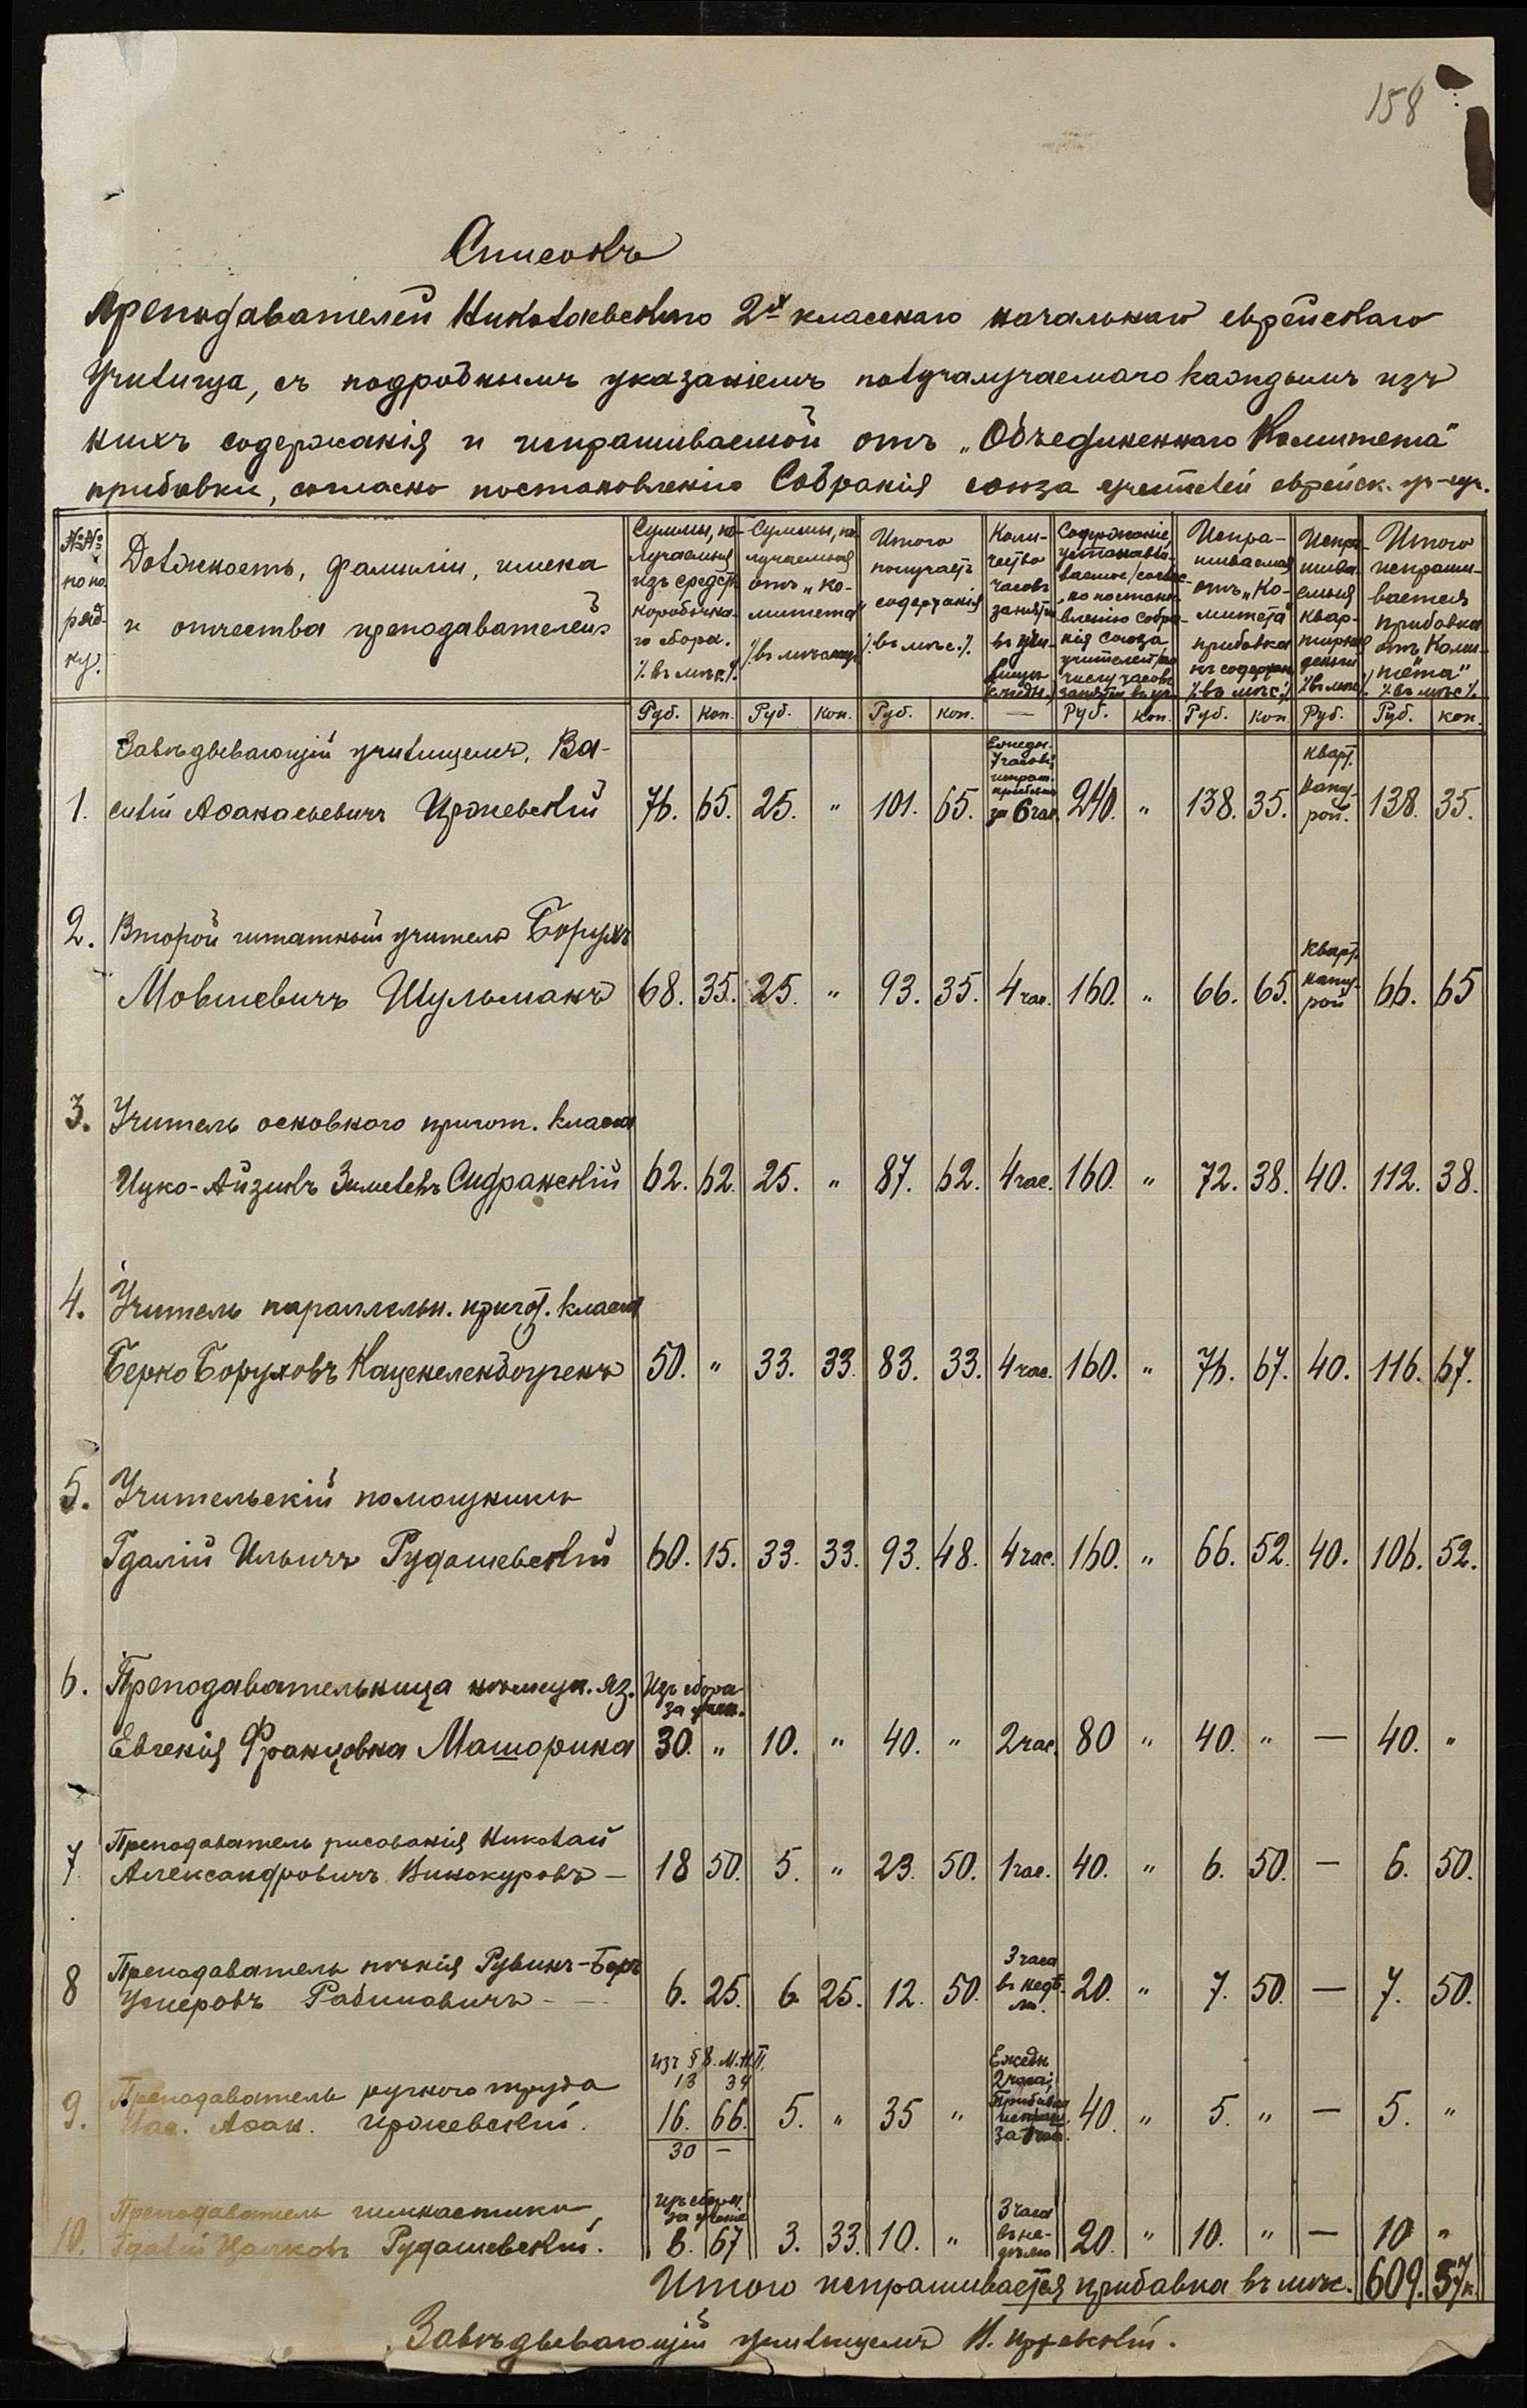 158
Списокъ
преподавателей Николаевскаго 2х класснаго начальнаго еврейскаго
училища, съ подробнымъ указаніемъ получалучаемаго каждымъ изъ
нихъ содержанія и испрашиваемой отъ „Объединеннаго Комитета"
прибавки, согласно постановленію Собранія союза учителей еврейск. уч-щ.
№№ по по рядку.
Должность, фамиліи, имена и отчества преподавателей
Суммы, получаемыя изъ средств коробочнаго сбора. /въ мѣс./
Суммы, получаемыя отъ „Комитета" /въ мѣсяцъ/
Итого получаетъ содержанія /въ мѣс./
Количество часовъ занятій
Содержаніе, устанавливаемое по постановленію собранія союза учителей
Испрашиваемая отъ „Комитета" прибавка къ содержан. /въ мѣс./
Испрашиваемыя квартирныя деньги /въ мѣс./
Итого испрашивается прибавка отъ Комитета" /въ мѣс/
Руб. Коп. Руб. Коп. Руб. Коп. — Руб. Коп. Руб. Коп. Руб. Руб. Коп.
Завѣдывающій училищемъ, Ва-
1. силій Аѳанасьевичъ Иржевскій 76. 65. 25. „ 101. 65. Ежедн. 7 часовъ, испраш. прибавка за 6 час. 240. „ 138. 35. кварт. натурой. 138. 35.
2. Второй штатный учитель Борухъ
Мовшевичъ Шульманъ 68. 35. 25. „ 93. 35. 4 час. 160. „ 66. 65. Кварт. натурой 66. 65
3. Учитель основного пригот. класса
Ицко-Айзикъ Сидранскій 62. 62. 25. „ 87. 62. 4 час. 160. „ 72. 38. 40. 112. 38.
4. Учитель параллельн. пригот. класса
Берко Боруховъ Каценеленбогенъ 50. „ 33. 33. 83. 33. 4 час. 160. „ 76. 67. 40. 116. 67.
5. Учительскій помощникъ
Гдалій Ильичъ Рудашевскій 60. 15. 33. 33. 93. 48. 4 час. 160. „ 66. 52. 40. 106. 52.
6. Преподавательница нѣмецк. яз. Изъ сбора за учен.
Евгенія Францовна Машорина 30. „ 10. „ 40. „ 2 час. 80 „ 40. „ — 40. „
Преподаватель рисованія Николай
7 Александровичъ Винокуровъ — 18 50. 5. „ 23. 50. 1 час. 40. „ 6. 50. — 6. 50.
Преподаватель пѣнія Рувинъ-Беръ
8 Умеровъ Рабиновичъ — 6. 25. 6 25. 12. 50. 3 часа въ недѣлю. 20. „ 7. 50. — 7. 50.
изъ § 8. М.Н.П.
13 34
Преподаватель ручного труда
9. Вас. Аѳан. Иржевскій. 16. 66. 5. „ 35 „ Ежедн. 2 часа; Прибавка испраш. за 1 час. 40. „ 5. „ — 5. „
30 —
Преподаватель гимнастики изъ сбора за ученіе
10. Гдалій Рудашевскій. 6. 67 3. 33. 10. „ 3 часа въ недѣлю 20. „ 10. „ — 10 „
Итого испрашивается прибавка въ мѣс. 609. 57 к.
Завѣдывающій училищемъ В. Иржевскій.